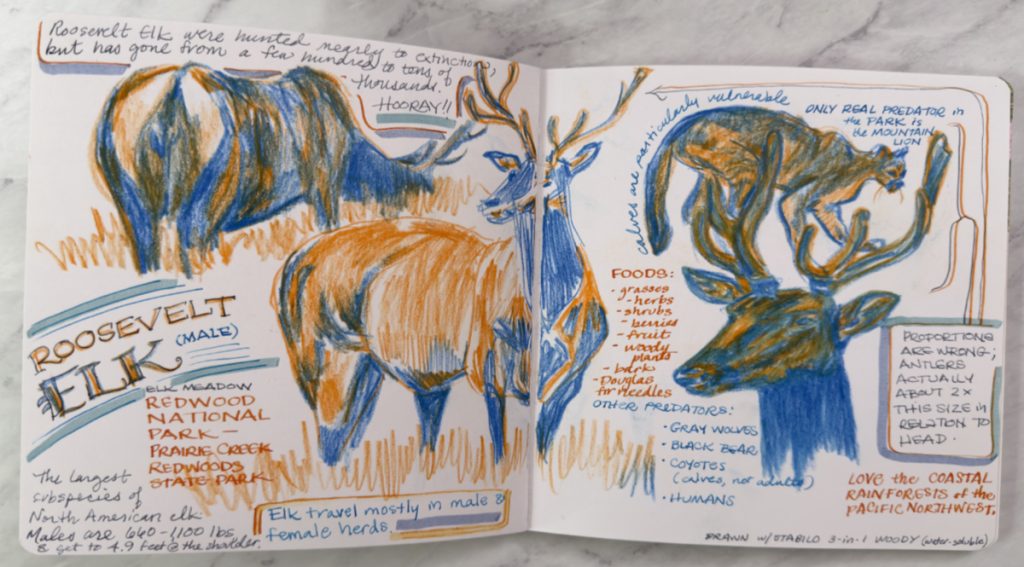 Roosevelt Elk were hunted nearly to extinction,
but has gone from a few hundred to tens of
thousands.
HOORAY!!
ROOSEVELT
(MALE)
ELK
ELK MEADOW
REDWOOD
NATIONAL
PARK —
PRAIRIE CREEK
REDWOODS
STATE PARK
The largest
subspecies of
North American elk
Males are 660-1,100 lbs
& get to 4.9 feet @ the shoulder.
Elk travel mostly in male &
female herds.
calves are particularly vulnerable
ONLY REAL PREDATOR in
the PARK is
the MOUNTAIN
LION
FOODS:
• grasses
- herbs
- shrubs
- berries
- fruit
- woody
plants
- bark
- Douglas
fir needles
OTHER PREDATORS:
• GRAY WOLVES
• BLACK BEAR
• COYOTES
(calves, not adults)
• HUMANS
PROPORTIONS
ARE WRONG;
ANTLERS
ACTUALLY
ABOUT 2X
THIS SIZE in
RELATION TO
HEAD.
LOVE the COASTAL
RAINFORESTS of the
PACIFIC NORTHWEST.
DRAWN w/ STABILO 3-in-1 WOODY (water-soluble)